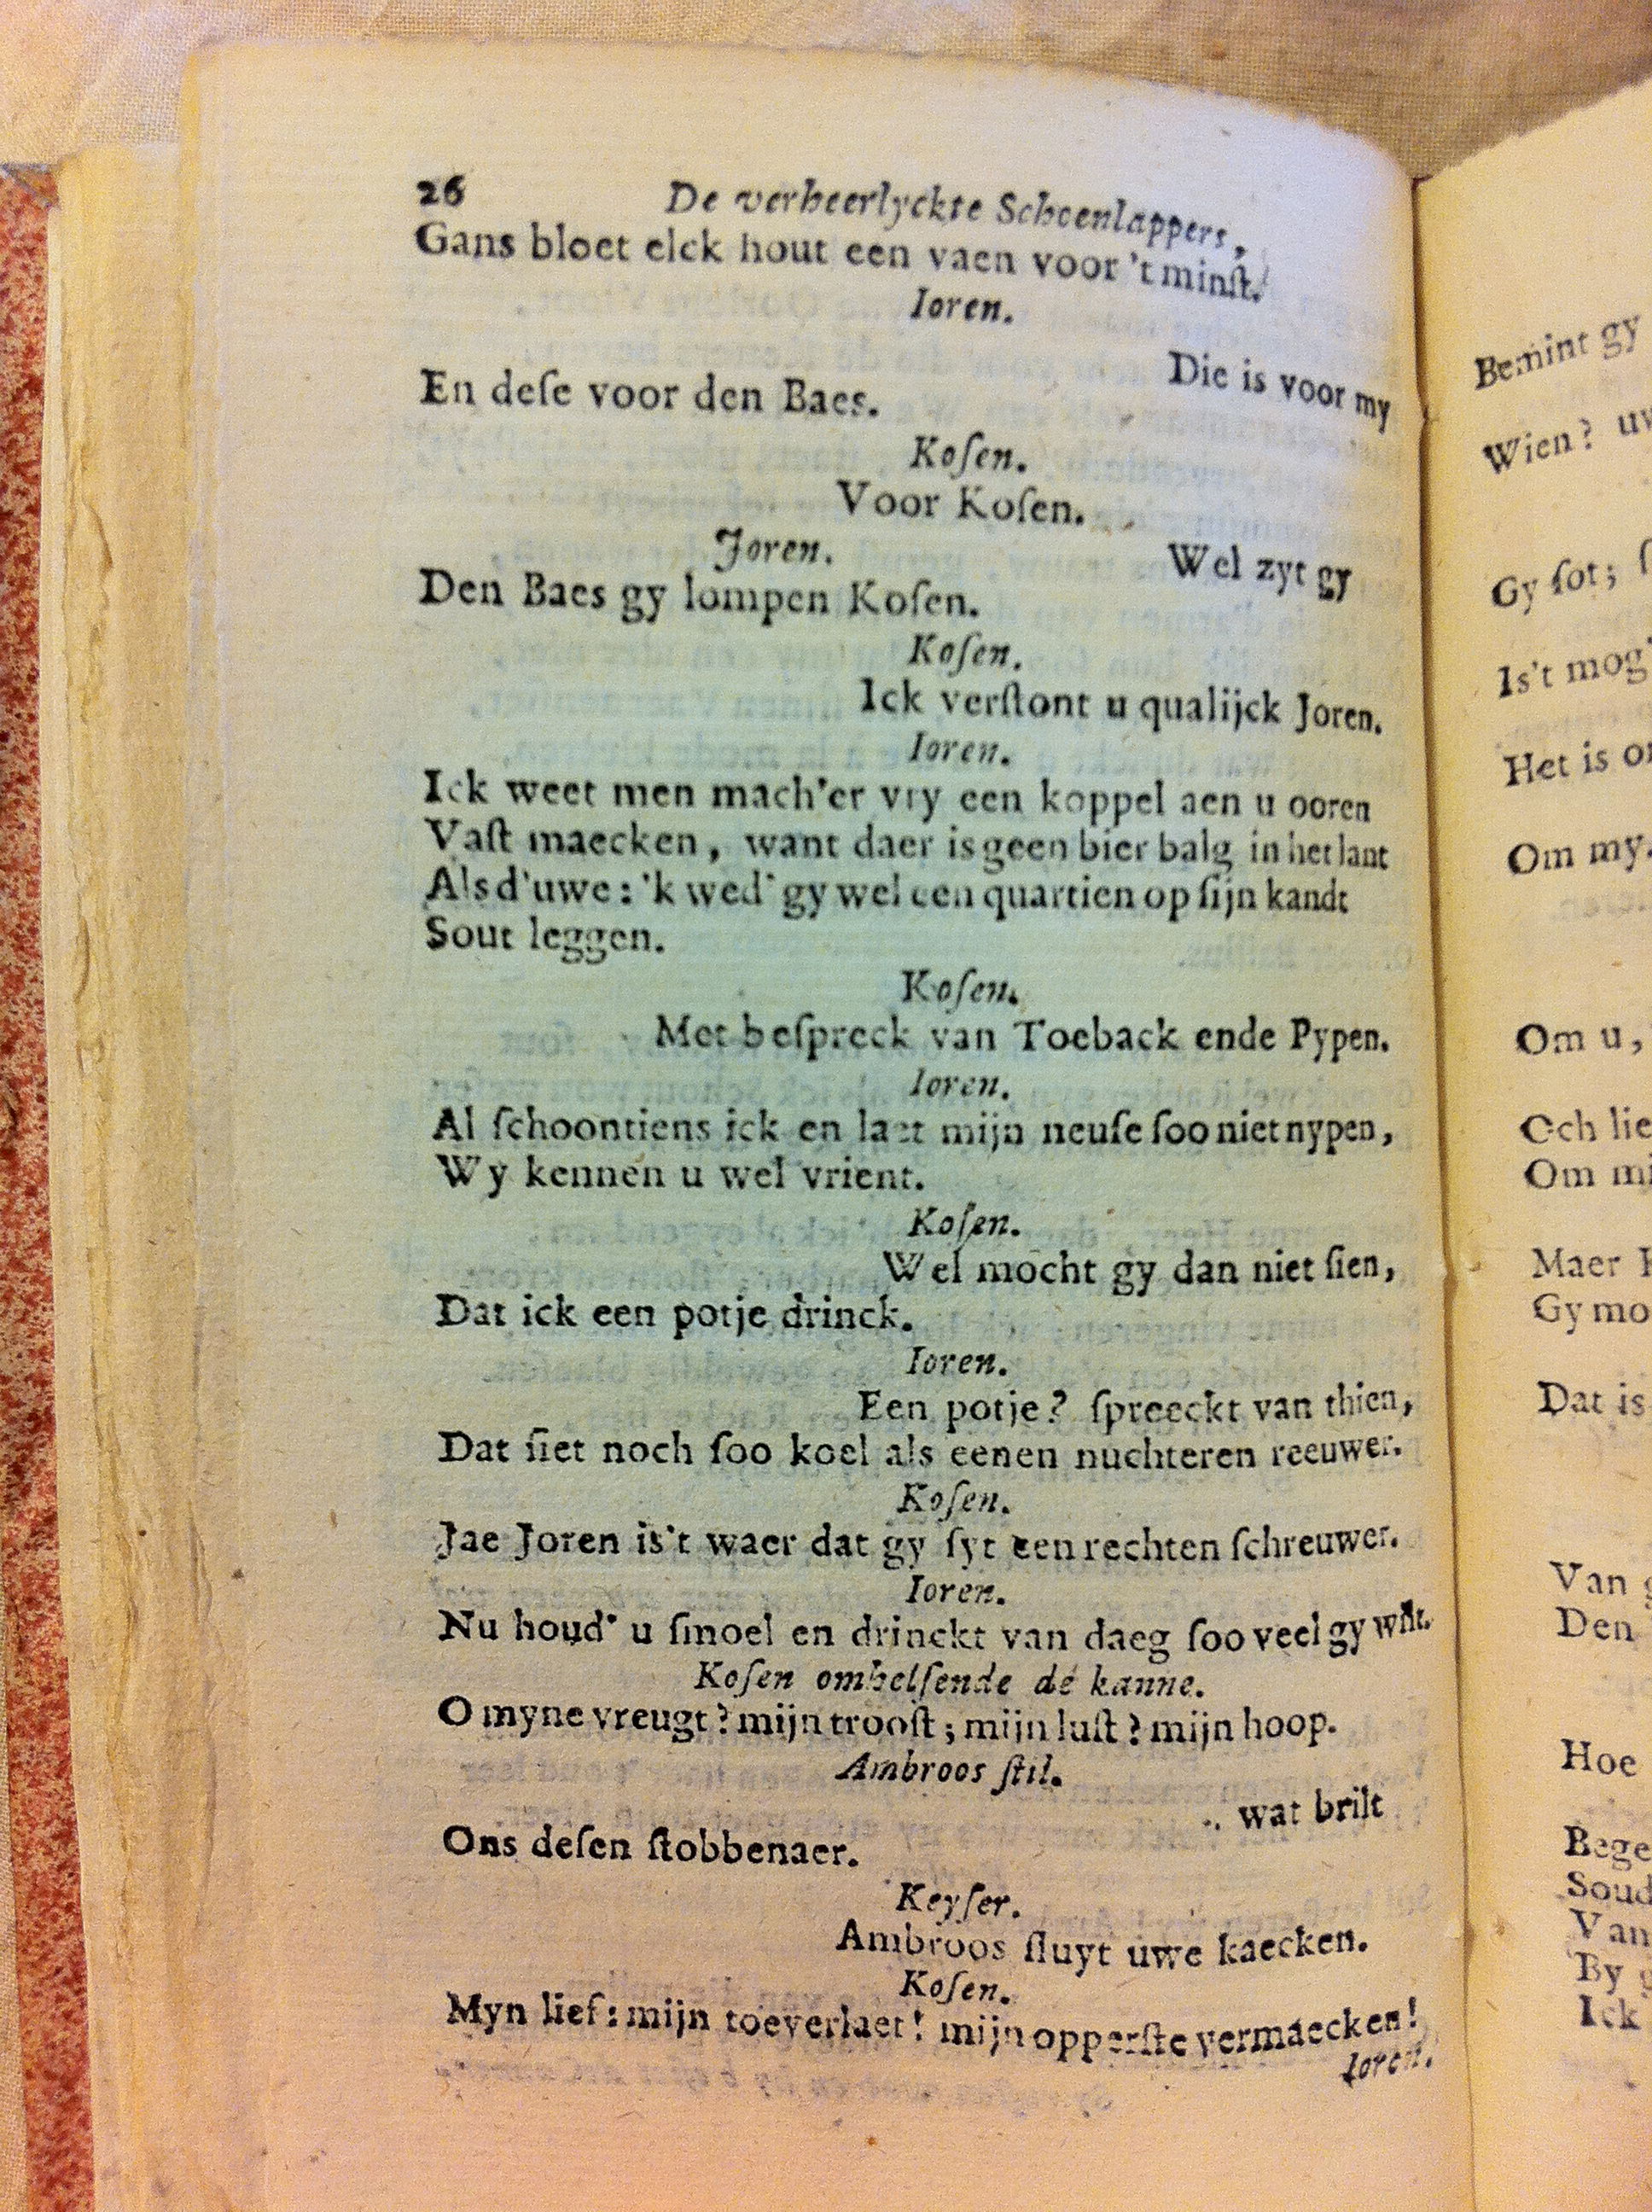 26 De verheerlyckte Schoenlappers,
Gans bloet elck hout een vaen voor 't minſt.
Ioren.
Die is voor my
En deſe voor den Baes.
Koſen.
Voor Koſen.
Joren.
Wel zyt gy
Den Baes gy lompen Koſen.
Koſen.
Ick verſtont u qualijck Joren.
Ioren.
Ick weet men mach'er vry een koppel aen u ooren
Vaſt maecken, want daer is geen bier balg in het lant
Als d'uwe: 'k wed' gy wel een quartien op ſijn kandt
Sout leggen.
Koſen.
Met beſpreck van Toeback ende Pypen.
Ioren.
Al ſchoontiens ick en laet mijn neuſe ſoo niet nypen,
Wy kennen u wel vrient.
Koſen.
Wel mocht gy dan niet ſien,
Dat ick een potje drinck.
Ioren.
Een potje? ſpreeckt van thien,
Dat ſiet noch ſoo koel als eenen nuchteren reeuwer.
Koſen.
Jae Joren is't waer dat gy ſyt een rechten ſchreuwer.
Ioren.
Nu houd' u ſmoel en drinckt van daeg ſoo veel gy wilt.
Koſen omhelſende de kanne.
O myne vreugt? mijn trooſt; mijn luſt? mijn hoop.
Ambroos ſtil.
wat brilt
Ons deſen ſtobbenaer.
Keyſer.
Ambroos ſluyt uwe kaecken.
Koſen.
Myn lief: mijn toeverlaet! mijn opperſte vermaecken!
Ioren.
Bemint gy
Wien?
Gy ſot;
Is't
Het is
Om my.
Om u,
Och
Om
Maer
Gy
Dat is
Van
Den
Hoe
Van
By
Ick